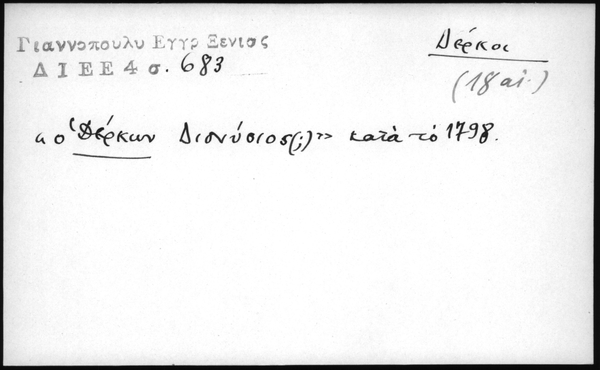 Γιαννοπουλυ Εγγρ Ξενιας
Δέρκοι
Δ Ι Ε Ε 4 σ. 683
(18 αἰ.)
«ὁ Δέρκων Διονύσιος(;)» κατὰ τὸ 1798.